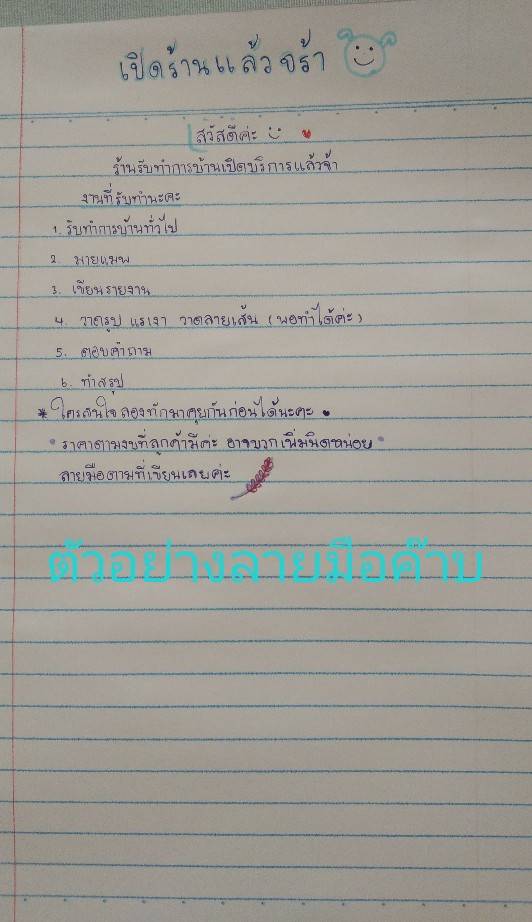 เปิดร้านแล้วจร้า
สวัสดีค่ะ
ร้านรับทำการบ้านเปิดบริการแล้วจ้า
งานที่รับทำนะคะ
1. รับทำการบ้านทั่วไป
2. มายแมพ
3. เขียนรายงาน
4. วาดรูป แรเงา วาดลายเส้น (พอทำได้ค่ะ)
5. ตอบคำถาม
6. ทำสรุป
* ใครสนใจลองทักมาคุยกันก่อนได้นะคะ
ราคาตามงบที่ลูกค้ามีค่ะ อาจบวกเพิ่มนิดหน่อย
ลายมือตามที่เขียนเลยค่ะ
ตัวอย่างลายมือค๊าบ